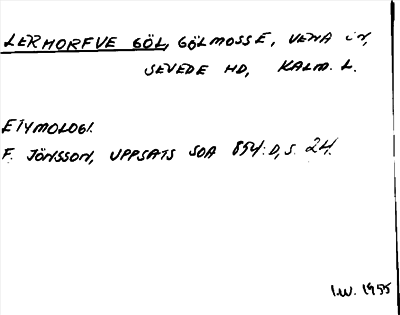 LERHORFVE GÖL, GÖLMOSSE, VENA SN,
SEVEDE HD, KALM. L.
ETYMOLOGI.
F. JÖNSSON, UPPSATS SOA 854:D, S. 24.
I.W. 1955